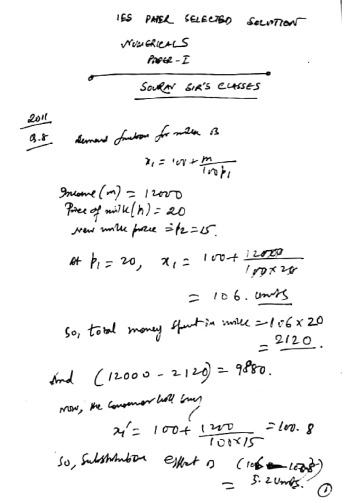 IES PAPER SELECTED SOLUTION
NUMERICALS
PAPER - I
SOURAV SIR'S CLASSES
2011
Q.8 demand function for milk is
x₁ = 100 + m/100p₁
Income (m) = 12000
Price of milk (p₁) = 20
New milk price = p₂ = 15.
At p₁ = 20, x₁ = 100 + 12000/100×20
= 106. units
So, total money spent in milk = 106 × 20
= 2120.
And (12000 - 2120) = 9880.
Now, the consumer will buy
x₁' = 100 + 1200/100×15 = 100.8
So, Substitution effect is (106 - 100.8)
= 5.2 units.
1